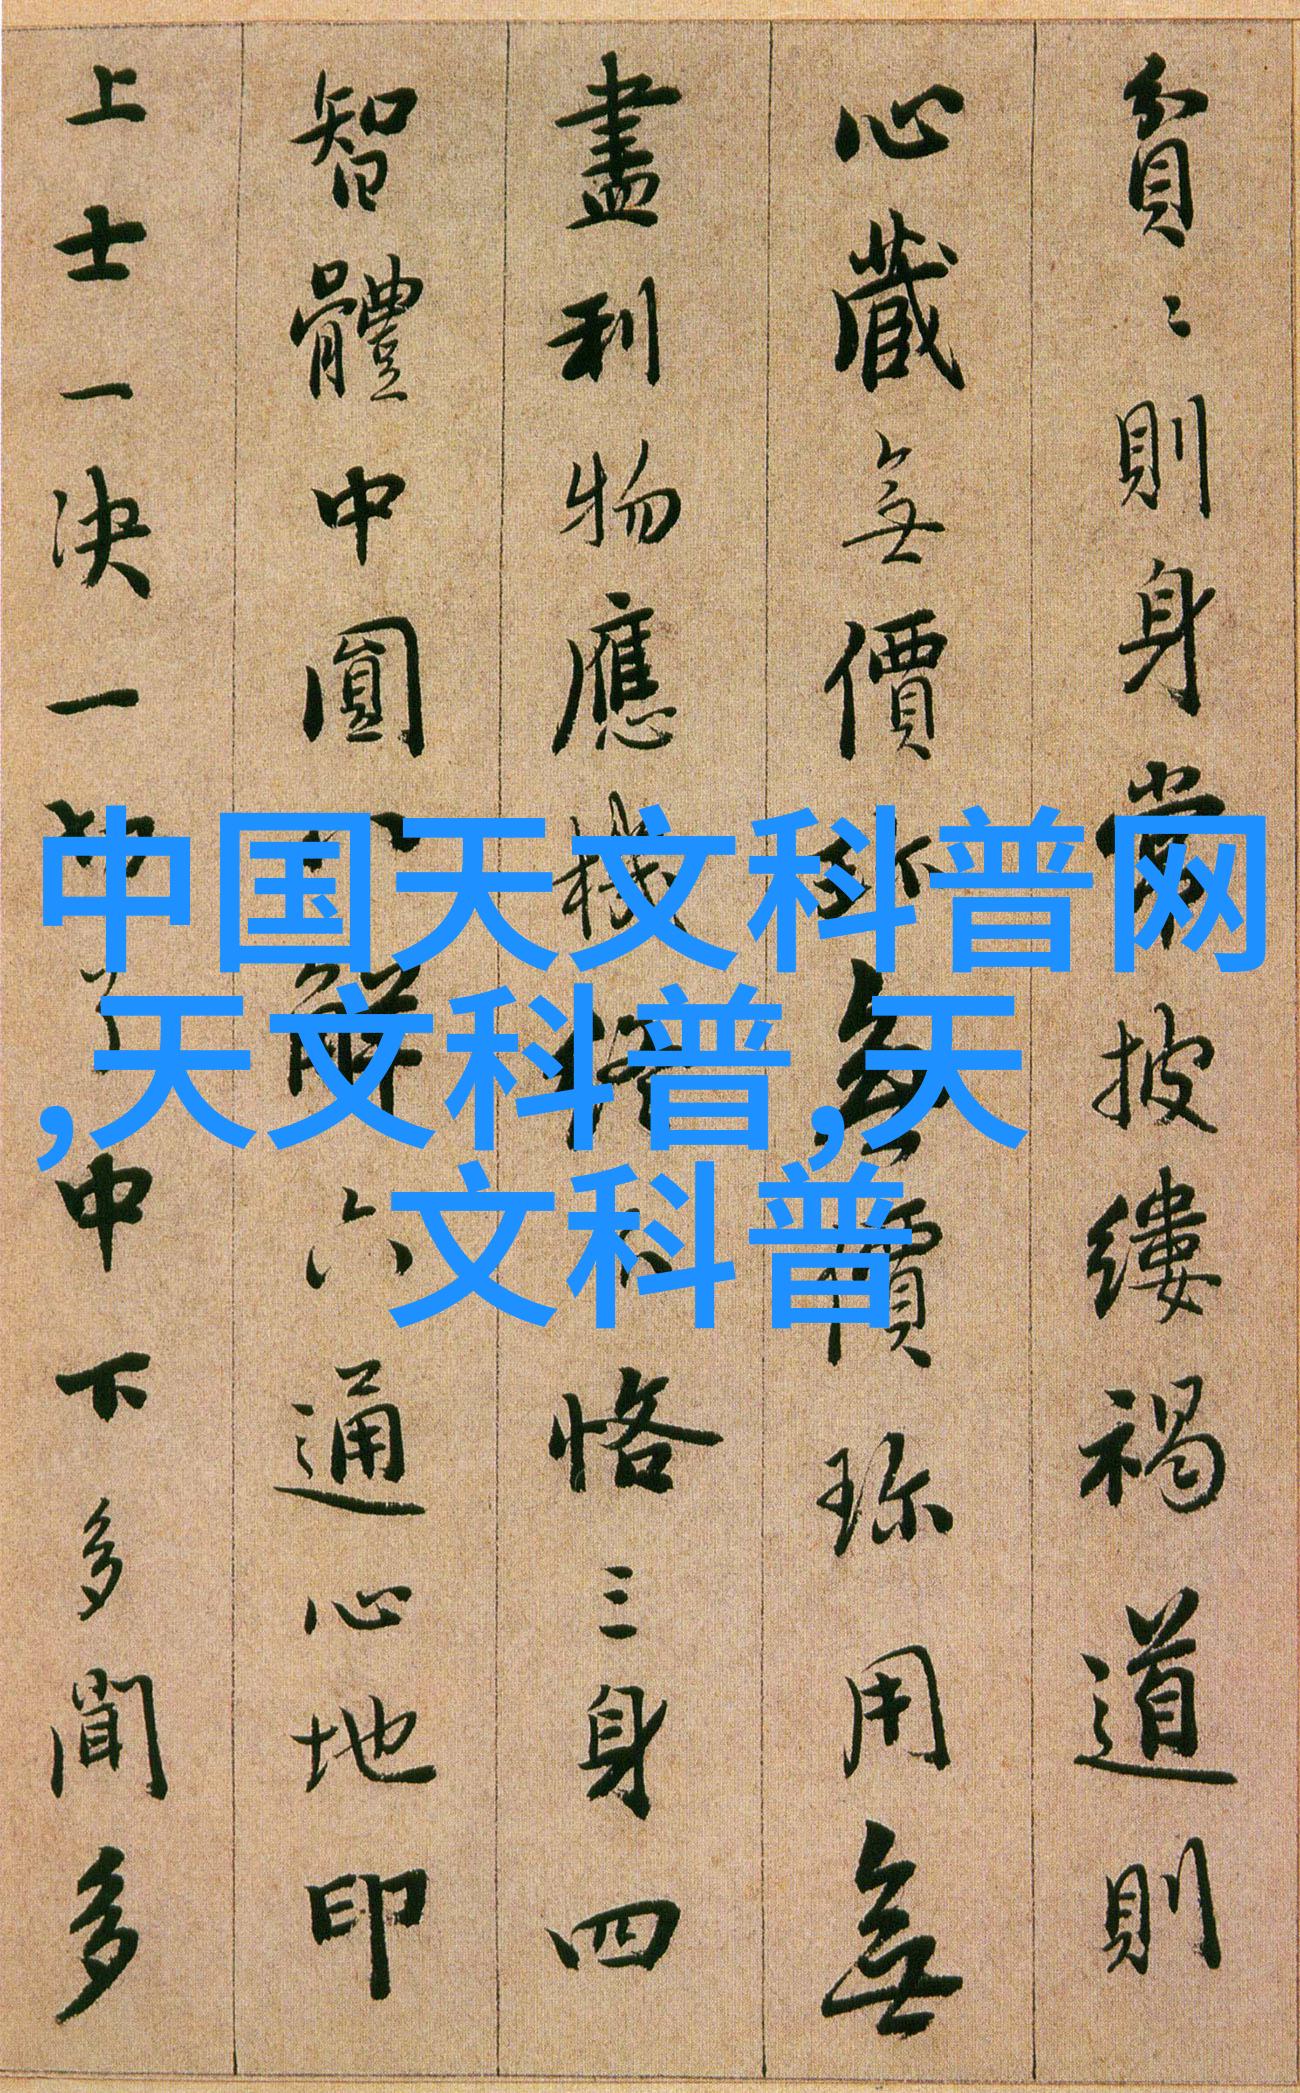 貧〻則身常披縷褐道則
心藏無價珎無價珎用無
盡利物應機不恪三身四
智體中圓八解六通心地印
上士一決一切了中下多聞多
中国天文科普网
,天文科普,天
文科普